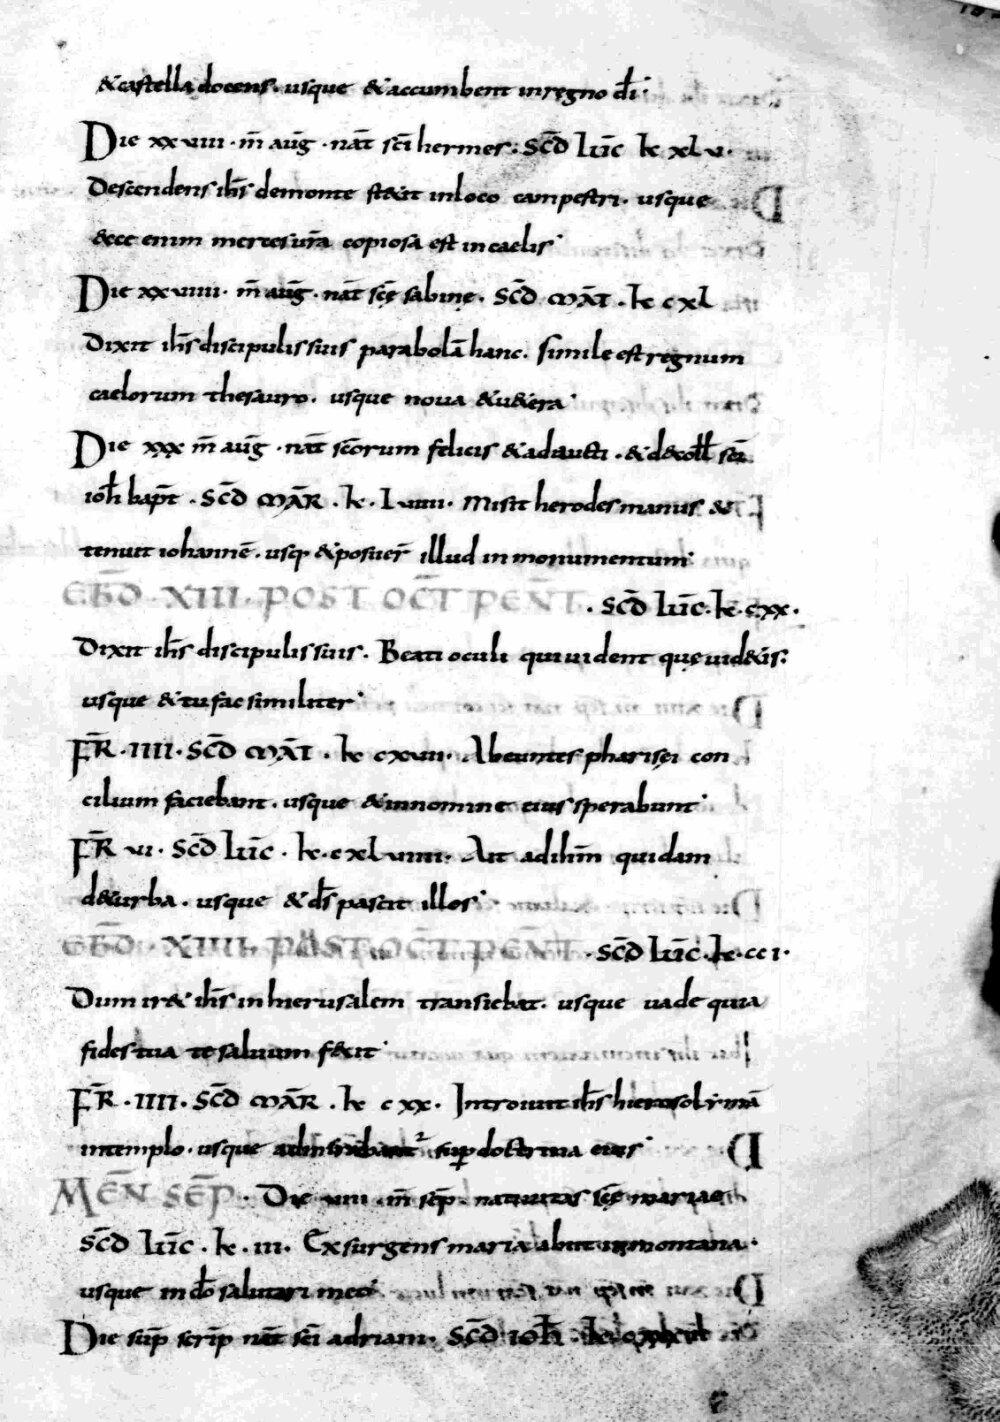 & castella docens. usque & accumbent in regno dī.
Die xxviii. m̄ aug̅. nat̅ sc̄i hermer. Sc̄d luc̄ k̅ xlv.
Descendens ih̄s demonte stetit inloco campestri. usque
& ecce enim merces ur̄a copiosa est in caelis.
Die xxviiii. m̄ aug̅. nat̅ sc̄ę sabinę. Sc̄d mat̅. k̅ cxl
Dixit ih̄s discipulis suis parabolā hanc. Simile est regnum
caelorum thesauro. usque nova & u&era.
Die xxx m̄ aug̅. nat̅ sc̄orum felicis & adaucti. & d&coll̄ sc̄i
ioh̄ bapt̅. Sc̄d mar̅. k̅. lviiii. Misit herodes manus &
tenuit iohannē. usq; & posuer̄ illud in monumentum.
EBD̄. XIII. POST OCT̄ PEN̄T. Sc̄d luc̄. k̅. cxx.
Dixit ih̄s discipulis suis. Beati oculi qui uident quę uid&is:
usque & tu fac similiter.
FR̄. IIII. Sc̄d mat̅. k̅ cxvii. Abeuntes pharisęi con
cilium faciebant. usque & in nomine eius sperabunt.
FR̄ vi. Sc̄d luc̄. k̅. cxlviiii. Ait ad ih̄m quidam
d&urba. usque & d̄s pascit illos.
EBD̄. XIIII. POST OCT̄ PEN̄T. Sc̄d luc̄. k̅. cci.
Dum ir& ih̄s in hierusalem transiebat. usque uade quia
fides tua te saluum fecit.
FR̄. IIII. Sc̄d mar̅. k̅ cxx. Introiuit ih̄s hierosolymā
in templo. usque admirabant̄ sup̄ doctrina eius.
MEN̄ SEP̄. Die viii. m̄ sep̄. natiuitas sc̄ę mariae
Sc̄d luc̄. k̅. iii. Exsurgens maria abiit in montana.
usque in dō salutari meo.
Die sup̄ scrip̄ nat̅ sc̄i adriani. Sc̄d ioh̄.